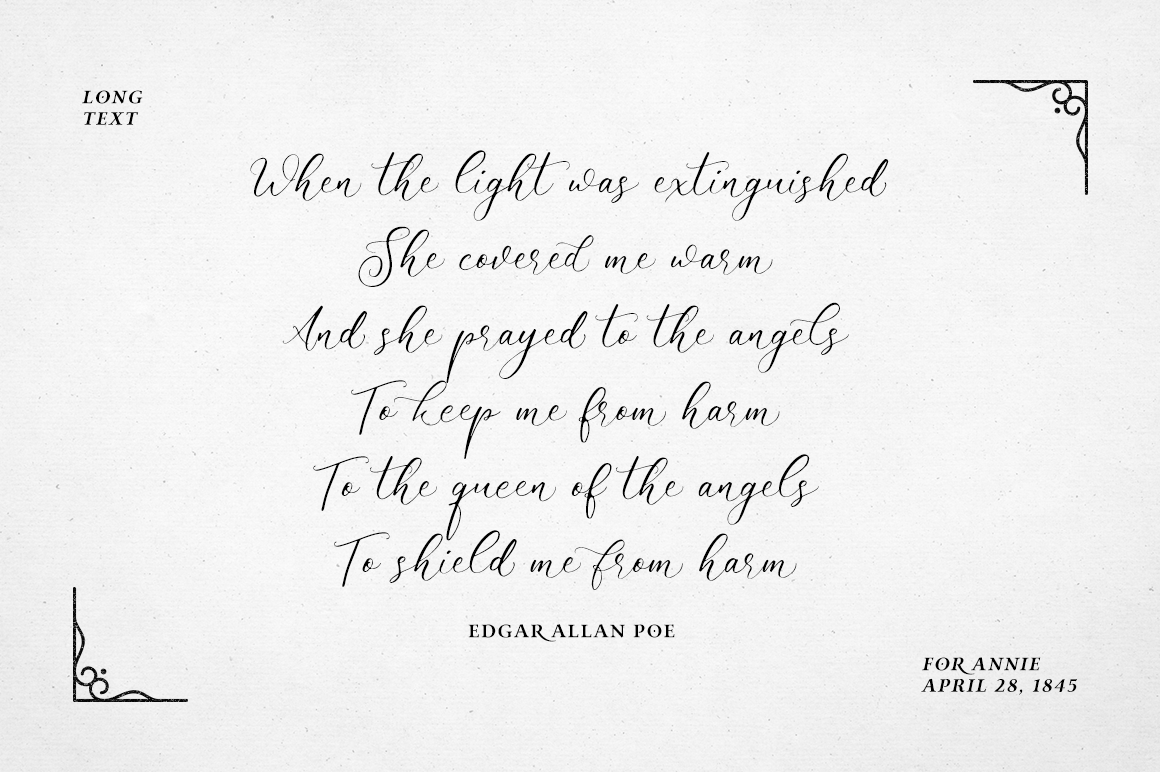 LONG
TEXT
When the light was extinguished
She covered me warm
And she prayed to the angels
To keep me from harm
To the queen of the angels
To shield me from harm
EDGAR ALLAN POE
FOR ANNIE
APRIL 28, 1845